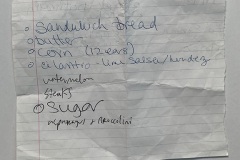 Sandwich bread
butter
corn (12 ears)
cilantro-lime salsa/
watermelon
steaks
Sugar